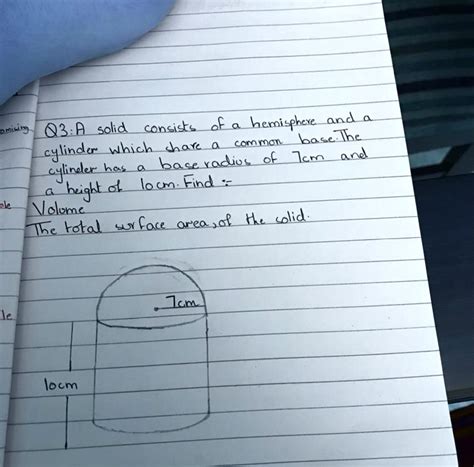 Q3: A solid consists of a hemisphere and a
cylinder which share a common base. The
cylinder has a base radius of 7cm and
a height of 10cm. Find :-
Volome
The total surface area, of the solid.
7cm
10cm